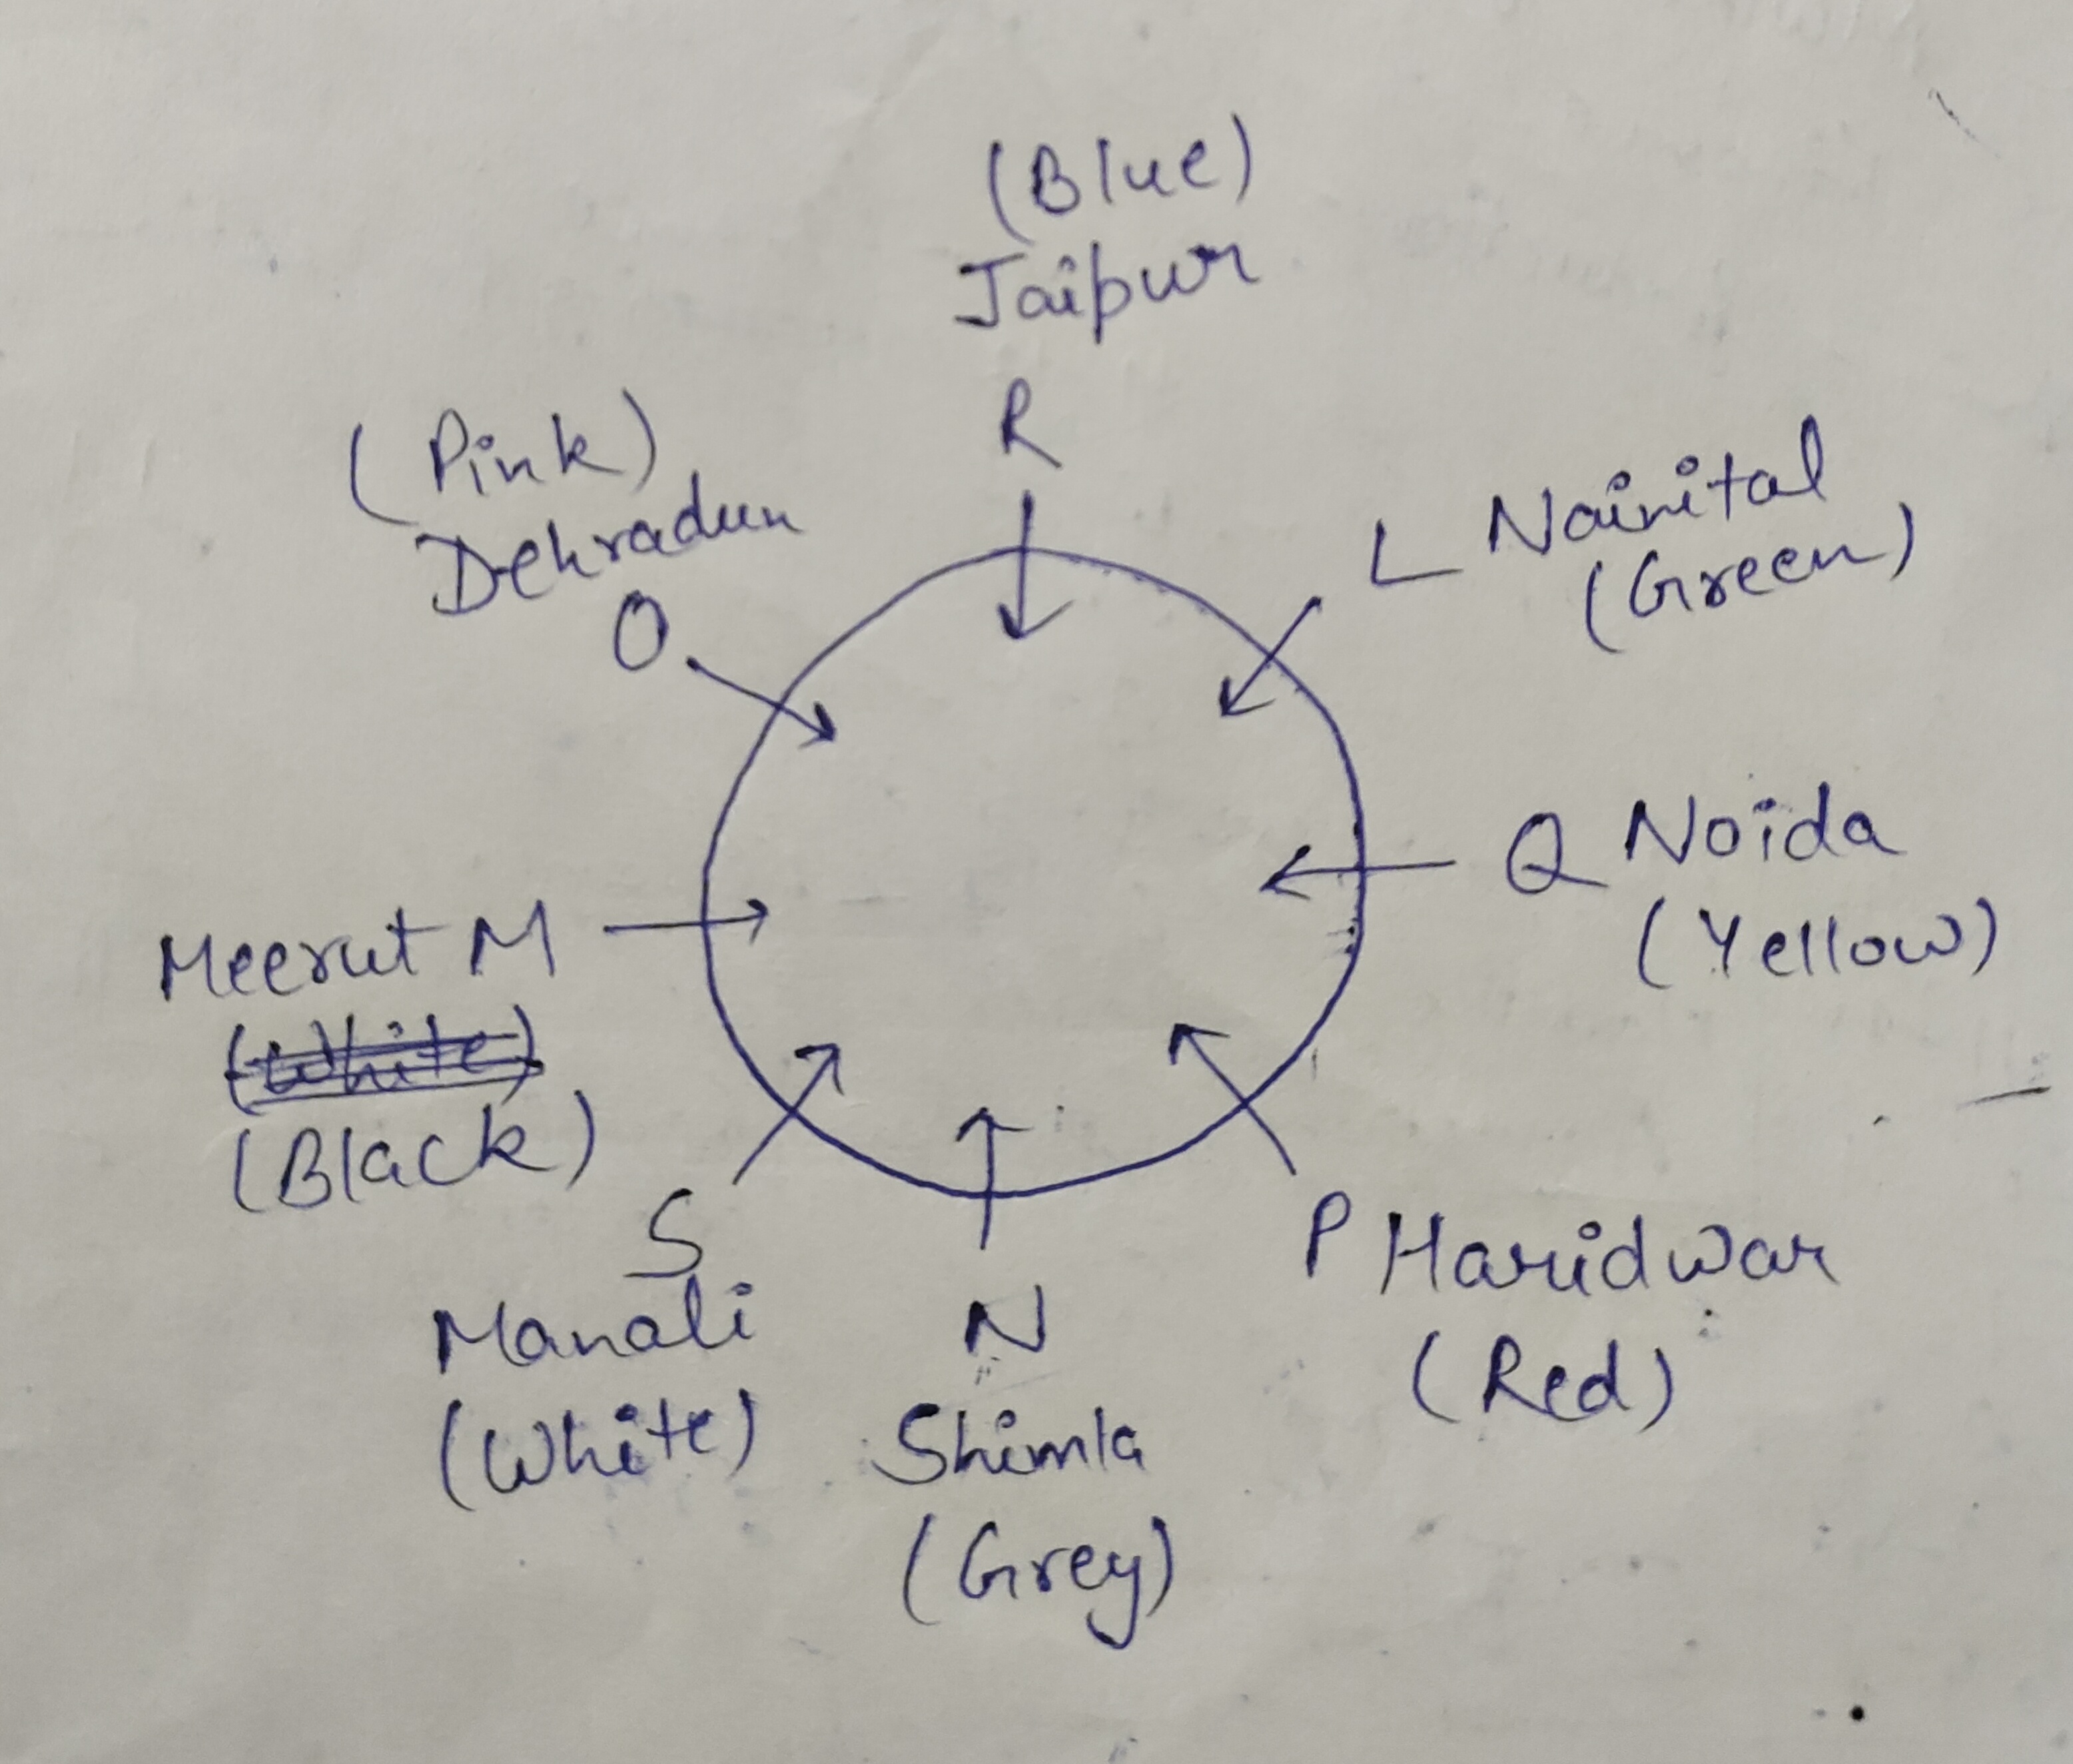 (Blue)
Jaipur
R
(Pink)
Dehradun
O
L Nainital
(Green)
Q Noida
(Yellow)
Meerut M
(White)
(Black)
S
Manali
(White)
N
Shimla
(Grey)
P Haridwar
(Red)